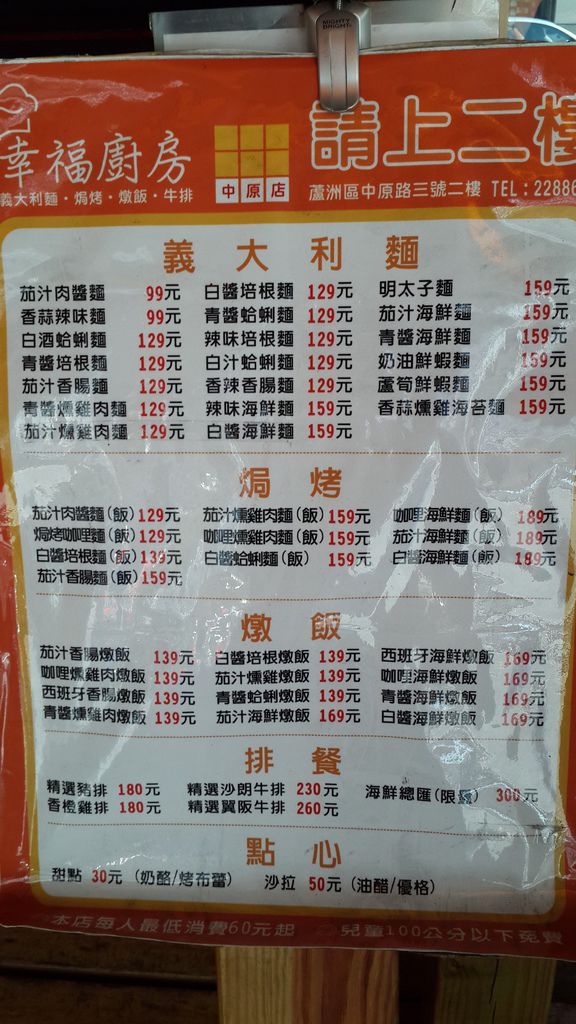 MIGHTY BRIGHT
幸福廚房
義大利麵·焗烤·燉飯·牛排
中原店
請上二樓
蘆洲區中原路三號二樓 TEL:22886
義大利麵
茄汁肉醬麵 99元 白醬培根麵 129元 明太子麵 159元
香蒜辣味麵 99元 青醬蛤蜊麵 129元 茄汁海鮮麵 159元
白酒蛤蜊麵 129元 辣味培根麵 129元 青醬海鮮麵 159元
青醬培根麵 129元 白汁蛤蜊麵 129元 奶油鮮蝦麵 159元
茄汁香腸麵 129元 香辣香腸麵 129元 蘆筍鮮蝦麵 159元
青醬燻雞肉麵 129元 辣味海鮮麵 159元 香蒜燻雞海苔麵 159元
茄汁燻雞肉麵 129元 白醬海鮮麵 159元
焗烤
茄汁肉醬麵(飯) 129元 茄汁燻雞肉麵(飯) 159元 咖哩海鮮麵(飯) 189元
焗烤咖哩麵(飯) 129元 咖哩燻雞肉麵(飯) 159元 茄汁海鮮麵(飯) 189元
白醬培根麵(飯) 139元 白醬蛤蜊麵(飯) 159元 白醬海鮮麵(飯) 189元
茄汁香腸麵(飯) 159元
燉飯
茄汁香腸燉飯 139元 白醬培根燉飯 139元 西班牙海鮮燉飯 169元
咖哩燻雞肉燉飯 139元 茄汁燻雞燉飯 139元 咖哩海鮮燉飯 169元
西班牙香腸燉飯 139元 青醬蛤蜊燉飯 139元 青醬海鮮燉飯 169元
青醬燻雞肉燉飯 139元 茄汁海鮮燉飯 169元 白醬海鮮燉飯 169元
排餐
精選豬排 180元 精選沙朗牛排 230元 海鮮總匯(限量) 300元
香橙雞排 180元 精選翼阪牛排 260元
點心
甜點 30元 (奶酪/烤布蕾) 沙拉 50元 (油醋/優格)
本店每人最低消費60元起 兒童100公分以下免費